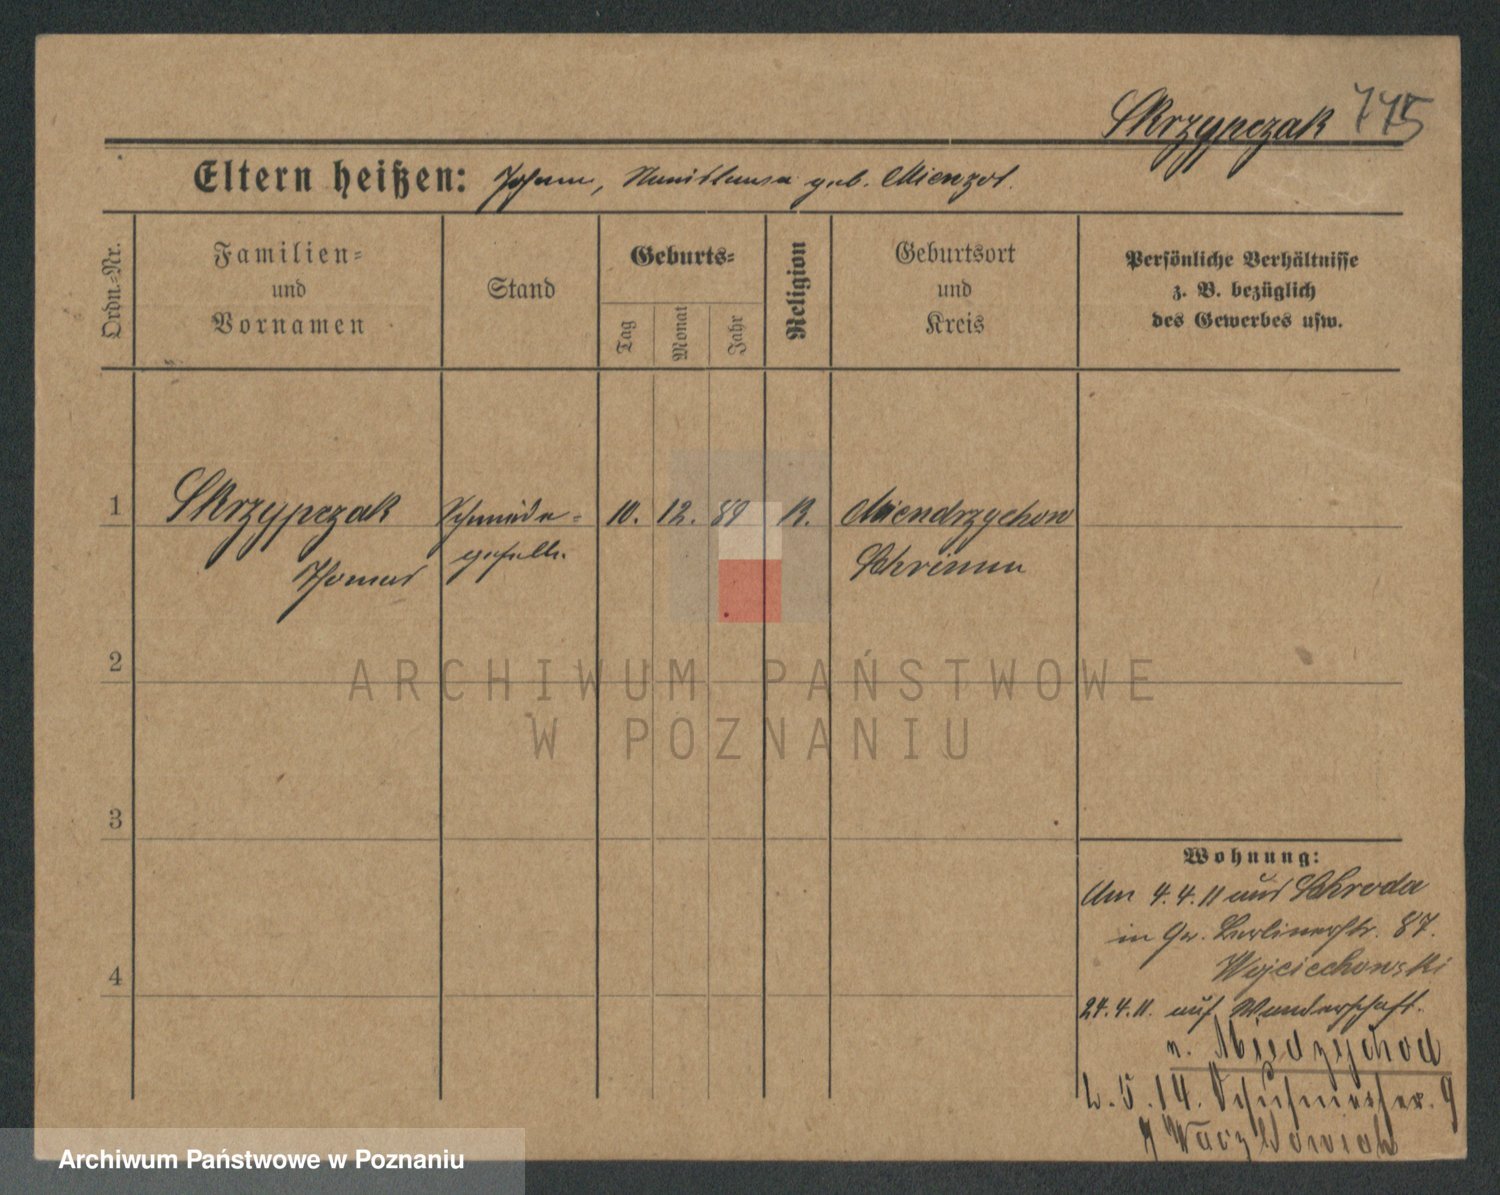 Skrzypczak 775
Eltern heißen: Johann, Stanislawa geb. Mienzot.
Ordn.-Nr.
Familien-
und
Vornamen
Stand
Geburts-
Tag
Monat
Jahr
Religion
Geburtsort
und
Kreis
Persönliche Verhältnisse
z. B. bezüglich
des Gewerbes usw.
1 Skrzypczak Schmiede- 10. 12. 89 K. Miendzychow
Thomas geselle. Schrimm
2
3
4
Wohnung:
Am 4.4.11 aus Schroda
in Gr. Berlinerstr. 87.
Wojciechowski
24.4.11. auf Wanderschaft.
n. Miedzychod
2.5.14. Schuhmacher. 9
ARCHIWUM PAŃSTWOWE
W POZNANIU
Archiwum Państwowe w Poznaniu